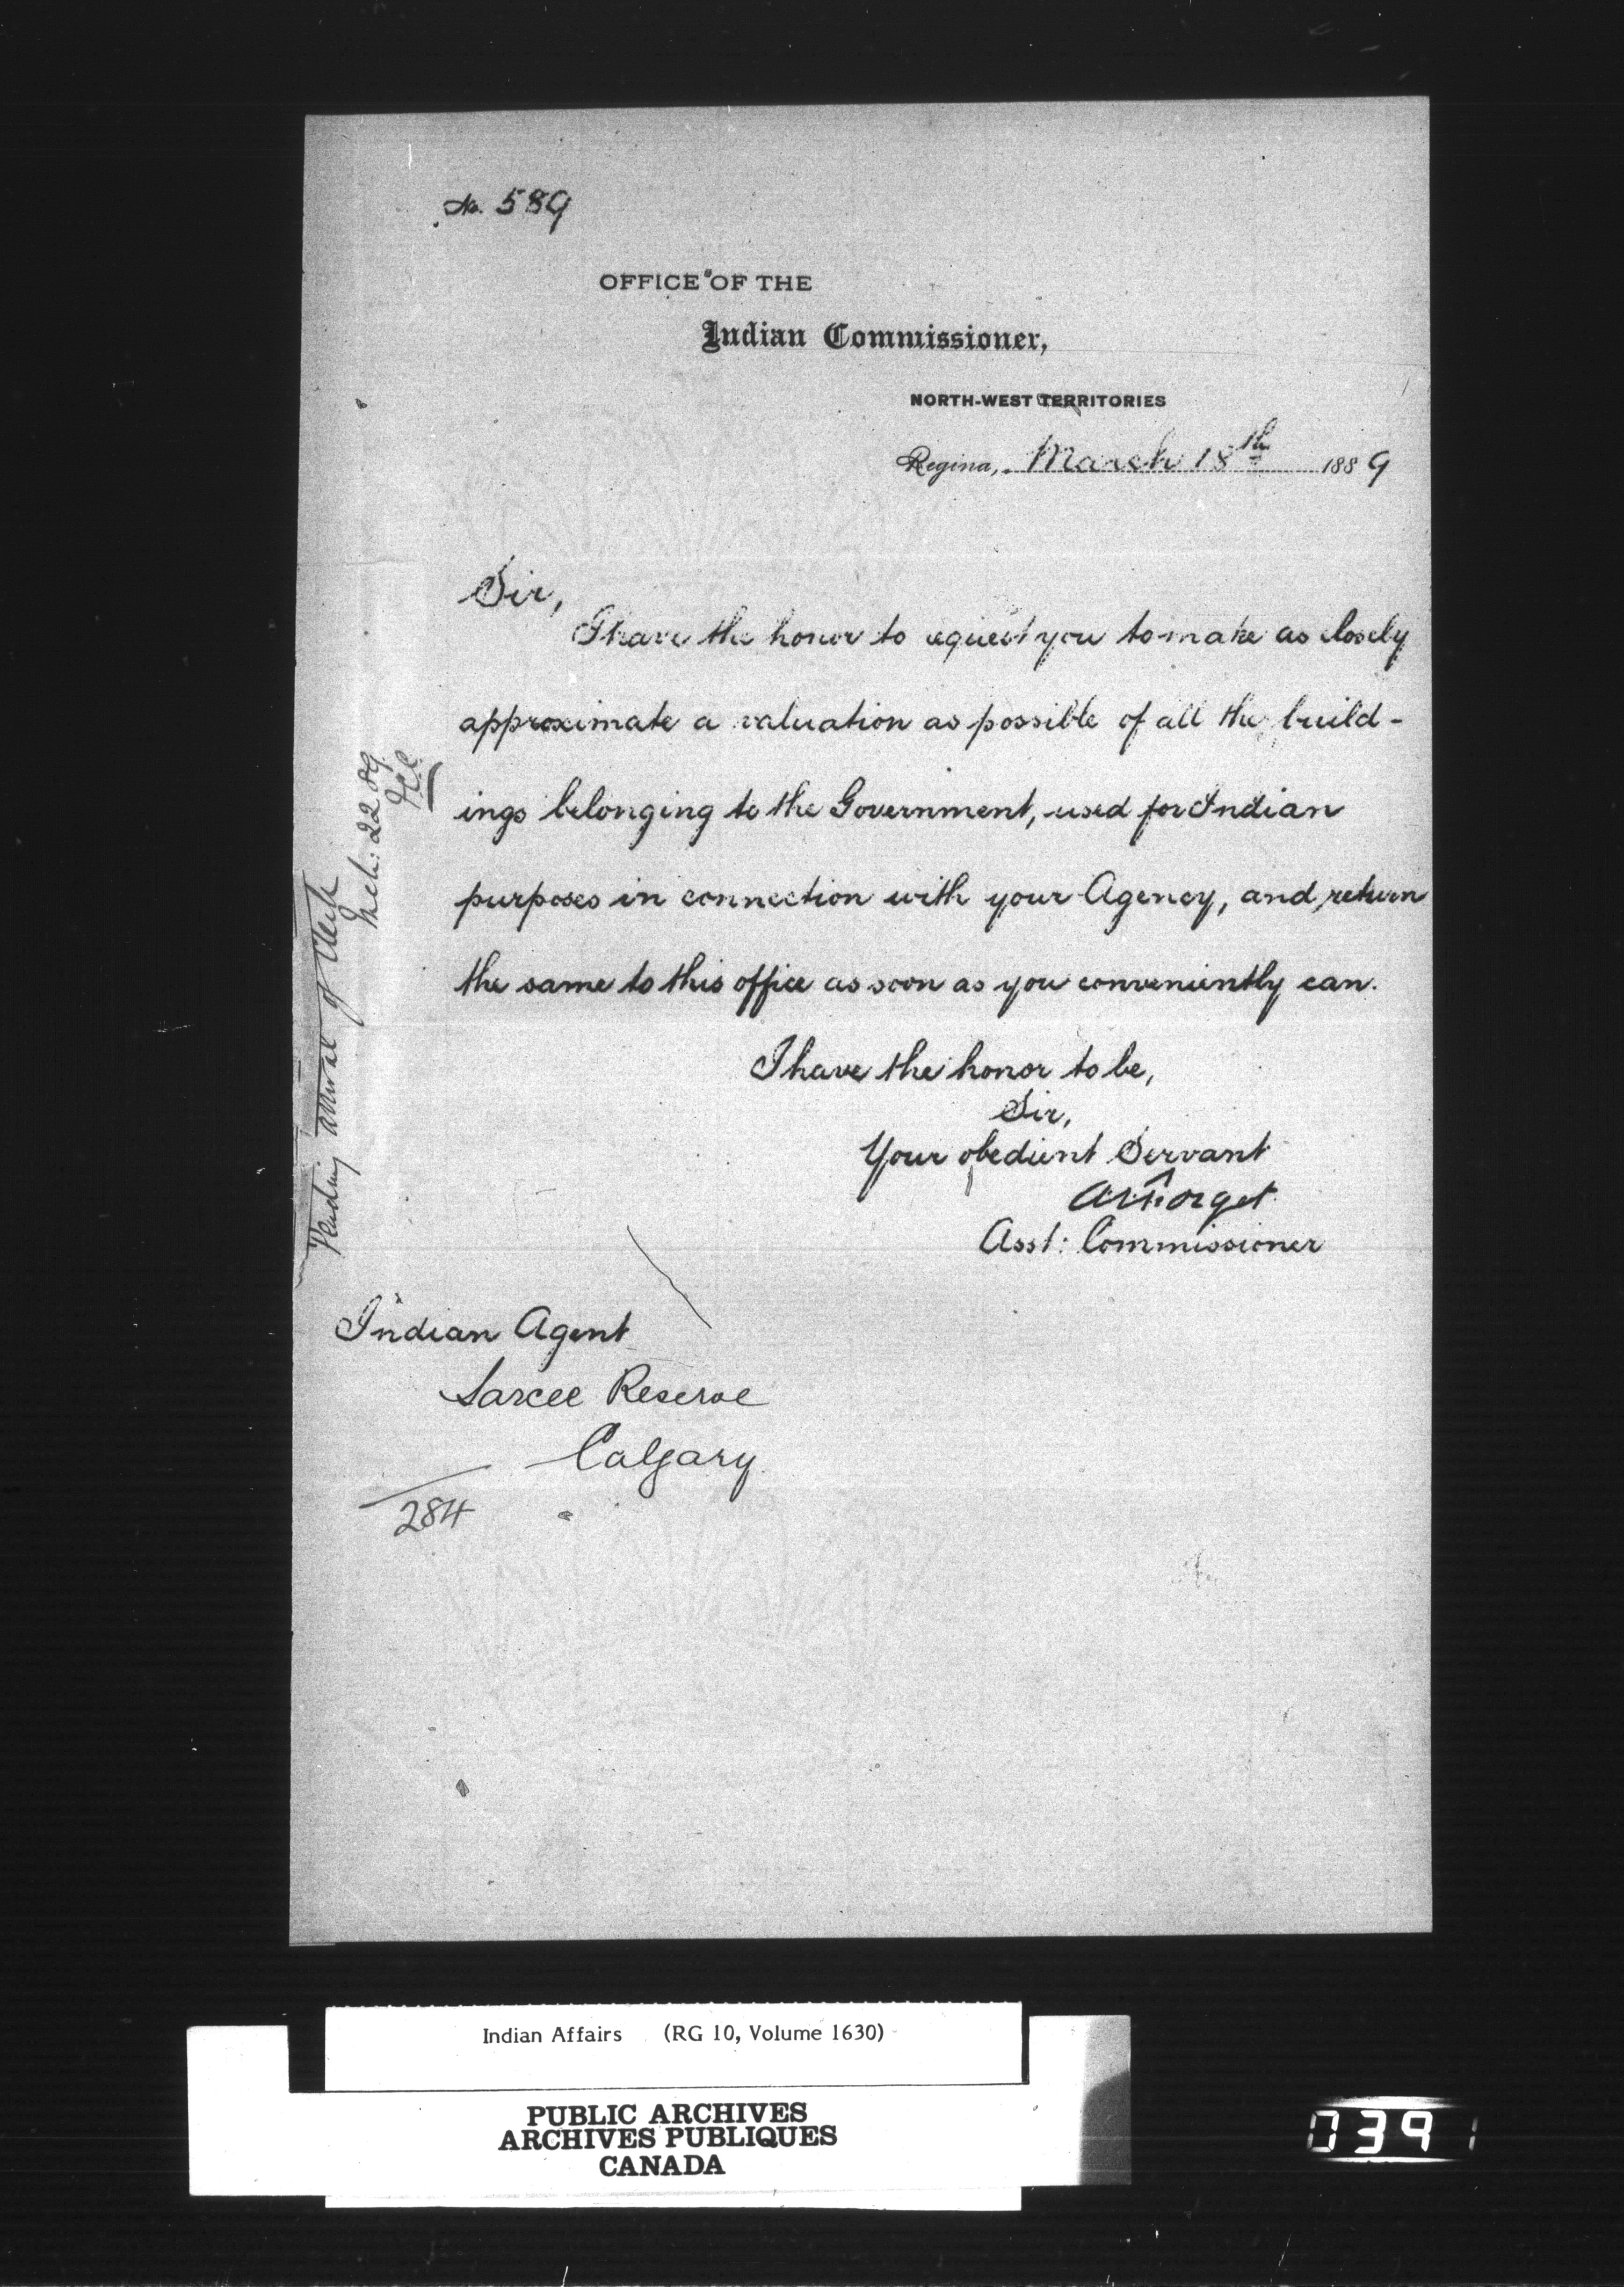 No. 589
OFFICE OF THE
Indian Commissioner,
NORTH-WEST TERRITORIES
Regina, March 18th 1889
Sir,
I have the honor to request you to make as closely
approximate a valuation as possible of all the build-
ings belonging to the Government, used for Indian
purposes in connection with your Agency, and return
the same to this office as soon as you conveniently can.
I have the honor to be,
Sir,
Your obedient Servant
AEForget
Asst: Commissioner
Indian Agent
Sarcee Reserve
Calgary
284
Pending arrival of Clerk
Mch: 22 89
Indian Affairs (RG 10, Volume 1630)
PUBLIC ARCHIVES
ARCHIVES PUBLIQUES
CANADA
0391